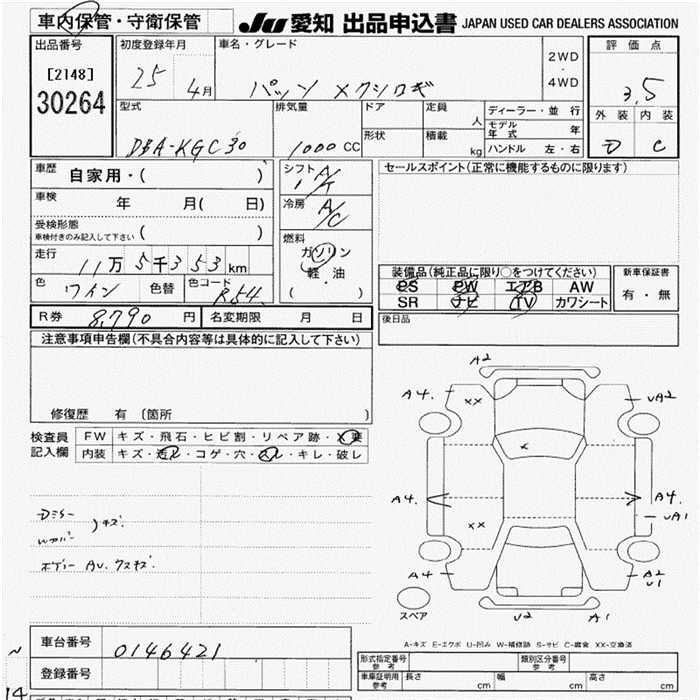 車内保管・守衛保管
JU 愛知 出品申込書 JAPAN USED CAR DEALERS ASSOCIATION
出品番号
[2148]
30264
初度登録年月
25 4月
車名・グレード
パッソ
2WD
・
4WD
評価点
3.5
外装 内装
D C
型式
DBA-KGC30
排気量
1000 CC
ドア
形状
定員
人
積載
kg
ディーラー・並行
モデル年式 年
ハンドル 左・右
車歴 自家用・( )
車検 年 月( 日)
受検形態
車検付きのみ記入して下さい ( )
走行 11万5千353km
色 ワイン 色替 色コード R54
シフト
A/T
冷房
A/C
燃料
ガソリン
軽・油
( )
セールスポイント(正常に機能するものに限ります)
装備品(純正品に限り○をつけてください)
PS PW エアB AW
SR ナビ TV カワシート
新車保証書
有・無
後日品
R券 8,790 円 名変期限 月 日
注意事項申告欄(不具合内容等は具体的に記入して下さい)
修復歴 有 (箇所 )
検査員記入欄
FW キズ・飛石・ヒビ割・リペア跡・X要
内装 キズ・汚れ・コゲ・穴・スレ・キレ・破レ
キズ.
ボディー AU. ウスキズ.
A2
A4. XX UA2
X
A4. A4.
UA1
XX
A4 A2
U1
スペア
U2 A1
A-キズ E-エクボ U-凹み W-補修跡 S-サビ C-腐食 XX-交換済
車台番号 0146421
登録番号
形式指定番号
参考
類別区分番号
参考
車庫証明用
参考
長さ cm 幅 cm 高さ cm
14